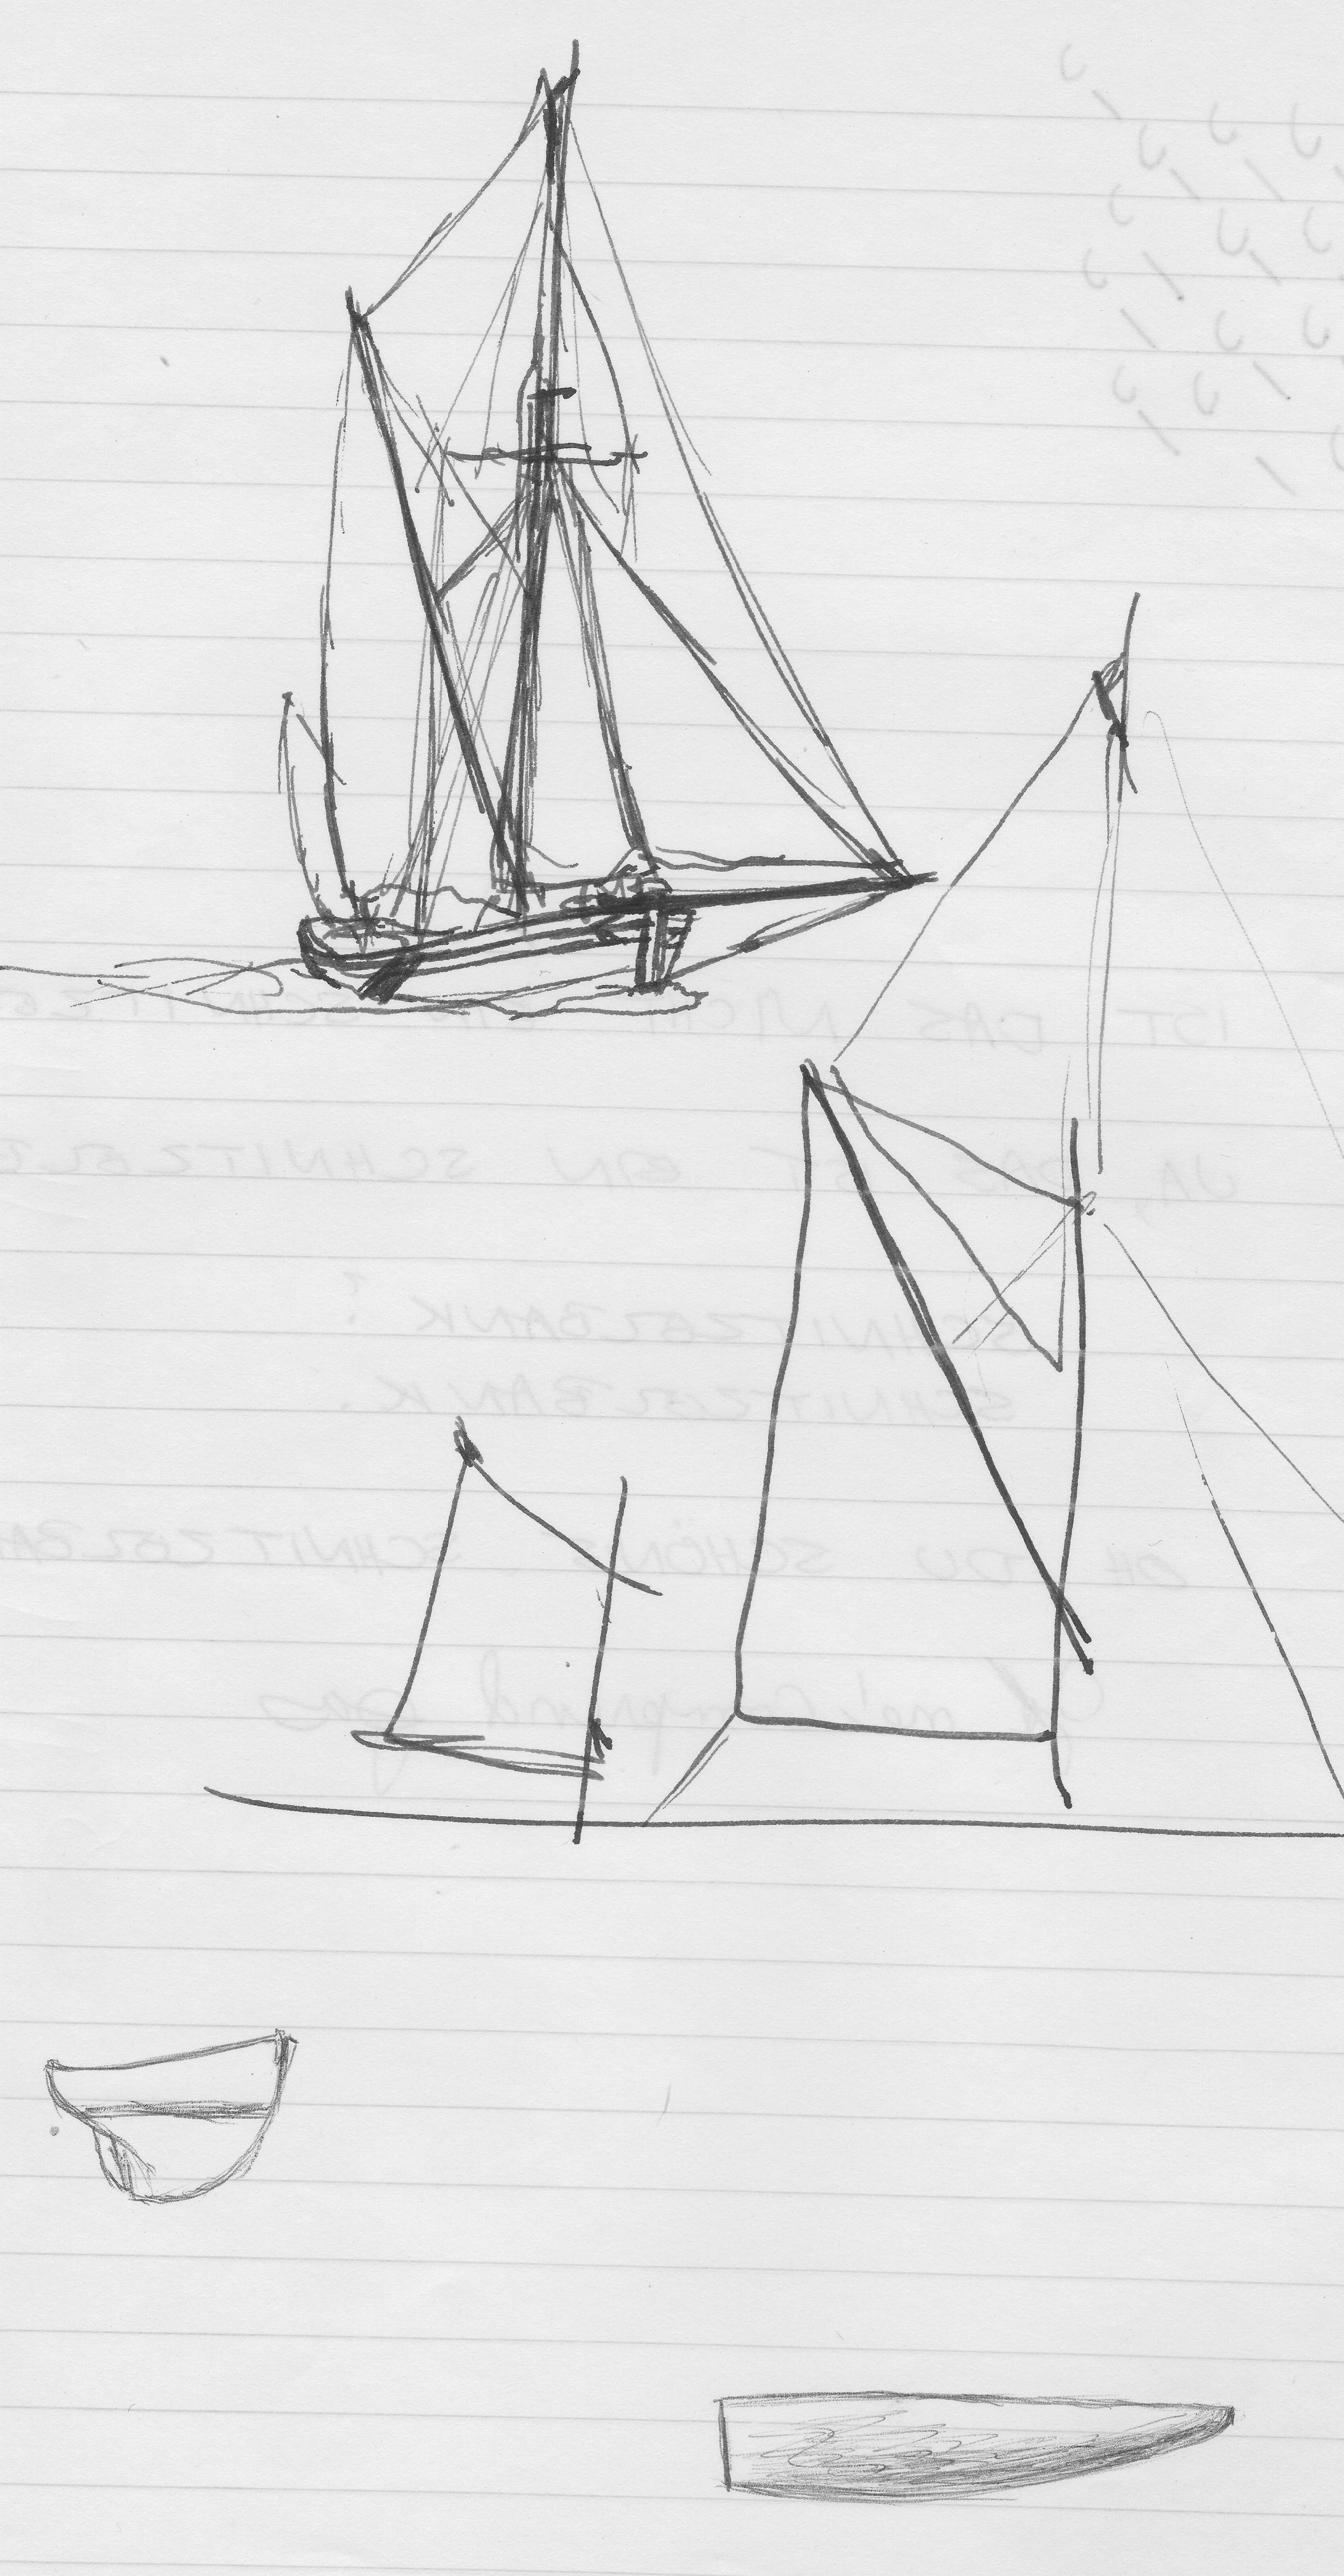 IST DAS NICHT EIN SCHNITZEL
JA, DAS IST EIN SCHNITZELB
SCHNITZELBANK ?
SCHNITZELBANK .
OH DU SCHÖNE SCHNITZELBA